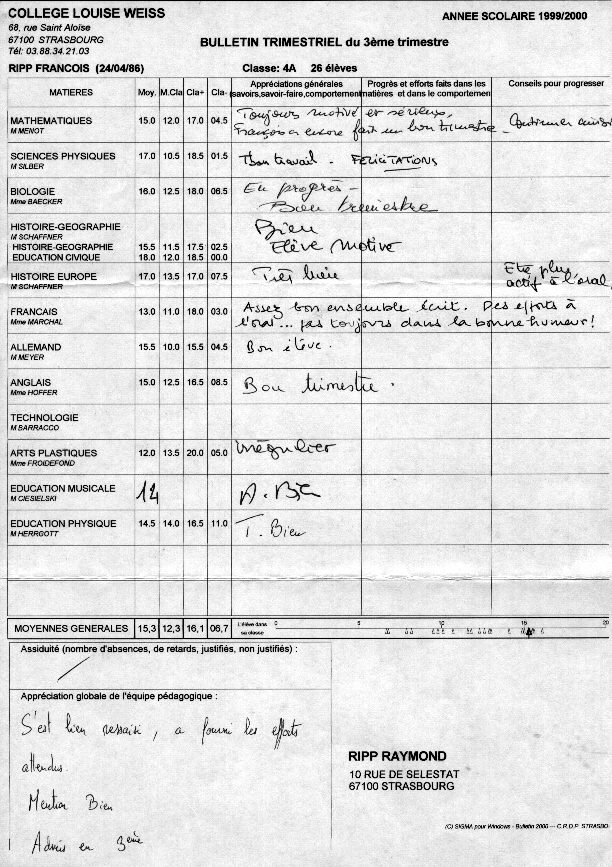 COLLEGE LOUISE WEISS
ANNEE SCOLAIRE 1999/2000
68, rue Saint Aloïse
67100 STRASBOURG
Tél: 03.88.34.21.03
BULLETIN TRIMESTRIEL du 3ème trimestre
RIPP FRANCOIS (24/04/86) Classe: 4A 26 élèves
MATIERES Moy. M.Cla Cla+ Cla- Appréciations générales (savoirs,savoir-faire,comportement) Progrès et efforts faits dans les matières et dans le comportemen Conseils pour progresser
MATHEMATIQUES 15.0 12.0 17.0 04.5 Toujours motivé et sérieux,
M MENOT François a encore fait un bon trimestre. Continuer ainsi
SCIENCES PHYSIQUES 17.0 10.5 18.5 01.5 Bon travail. FELICITATIONS
M SILBER
BIOLOGIE 16.0 12.5 18.0 06.5 En progrès -
Mme BAECKER Bien trimestre
HISTOIRE-GEOGRAPHIE Bien
M SCHAFFNER
HISTOIRE-GEOGRAPHIE 15.5 11.5 17.5 02.5 Elève motivé
EDUCATION CIVIQUE 18.0 12.0 18.5 00.0
HISTOIRE EUROPE 17.0 13.5 17.0 07.5 Très bien Etre plus
M SCHAFFNER actif à l'oral
FRANCAIS 13.0 11.0 18.0 03.0 Assez bon ensemble écrit. Des efforts à
Mme MARCHAL l'oral... pas toujours dans la bonne humeur!
ALLEMAND 15.5 10.0 15.5 04.5 Bon élève.
M MEYER
ANGLAIS 15.0 12.5 16.5 08.5 Bon trimestre.
Mme HOFFER
TECHNOLOGIE
M BARRACCO
ARTS PLASTIQUES 12.0 13.5 20.0 05.0 irrégulier
Mme FROIDEFOND
EDUCATION MUSICALE 14 A. Bien
M CIESIELSKI
EDUCATION PHYSIQUE 14.5 14.0 16.5 11.0 T. Bien
M HERRGOTT
MOYENNES GENERALES 15,3 12,3 16,1 06,7 L'élève dans sa classe 0 5 10 15 20
Assiduité (nombre d'absences, de retards, justifiés, non justifiés) :
Appréciation globale de l'équipe pédagogique :
S'est bien ressaisi, a fourni les efforts
attendus.
Mention Bien
Admis en 3ème
RIPP RAYMOND
10 RUE DE SELESTAT
67100 STRASBOURG
(C) SIGMA pour Windows - Bulletin 2000 — C.R.D.P. STRASBO